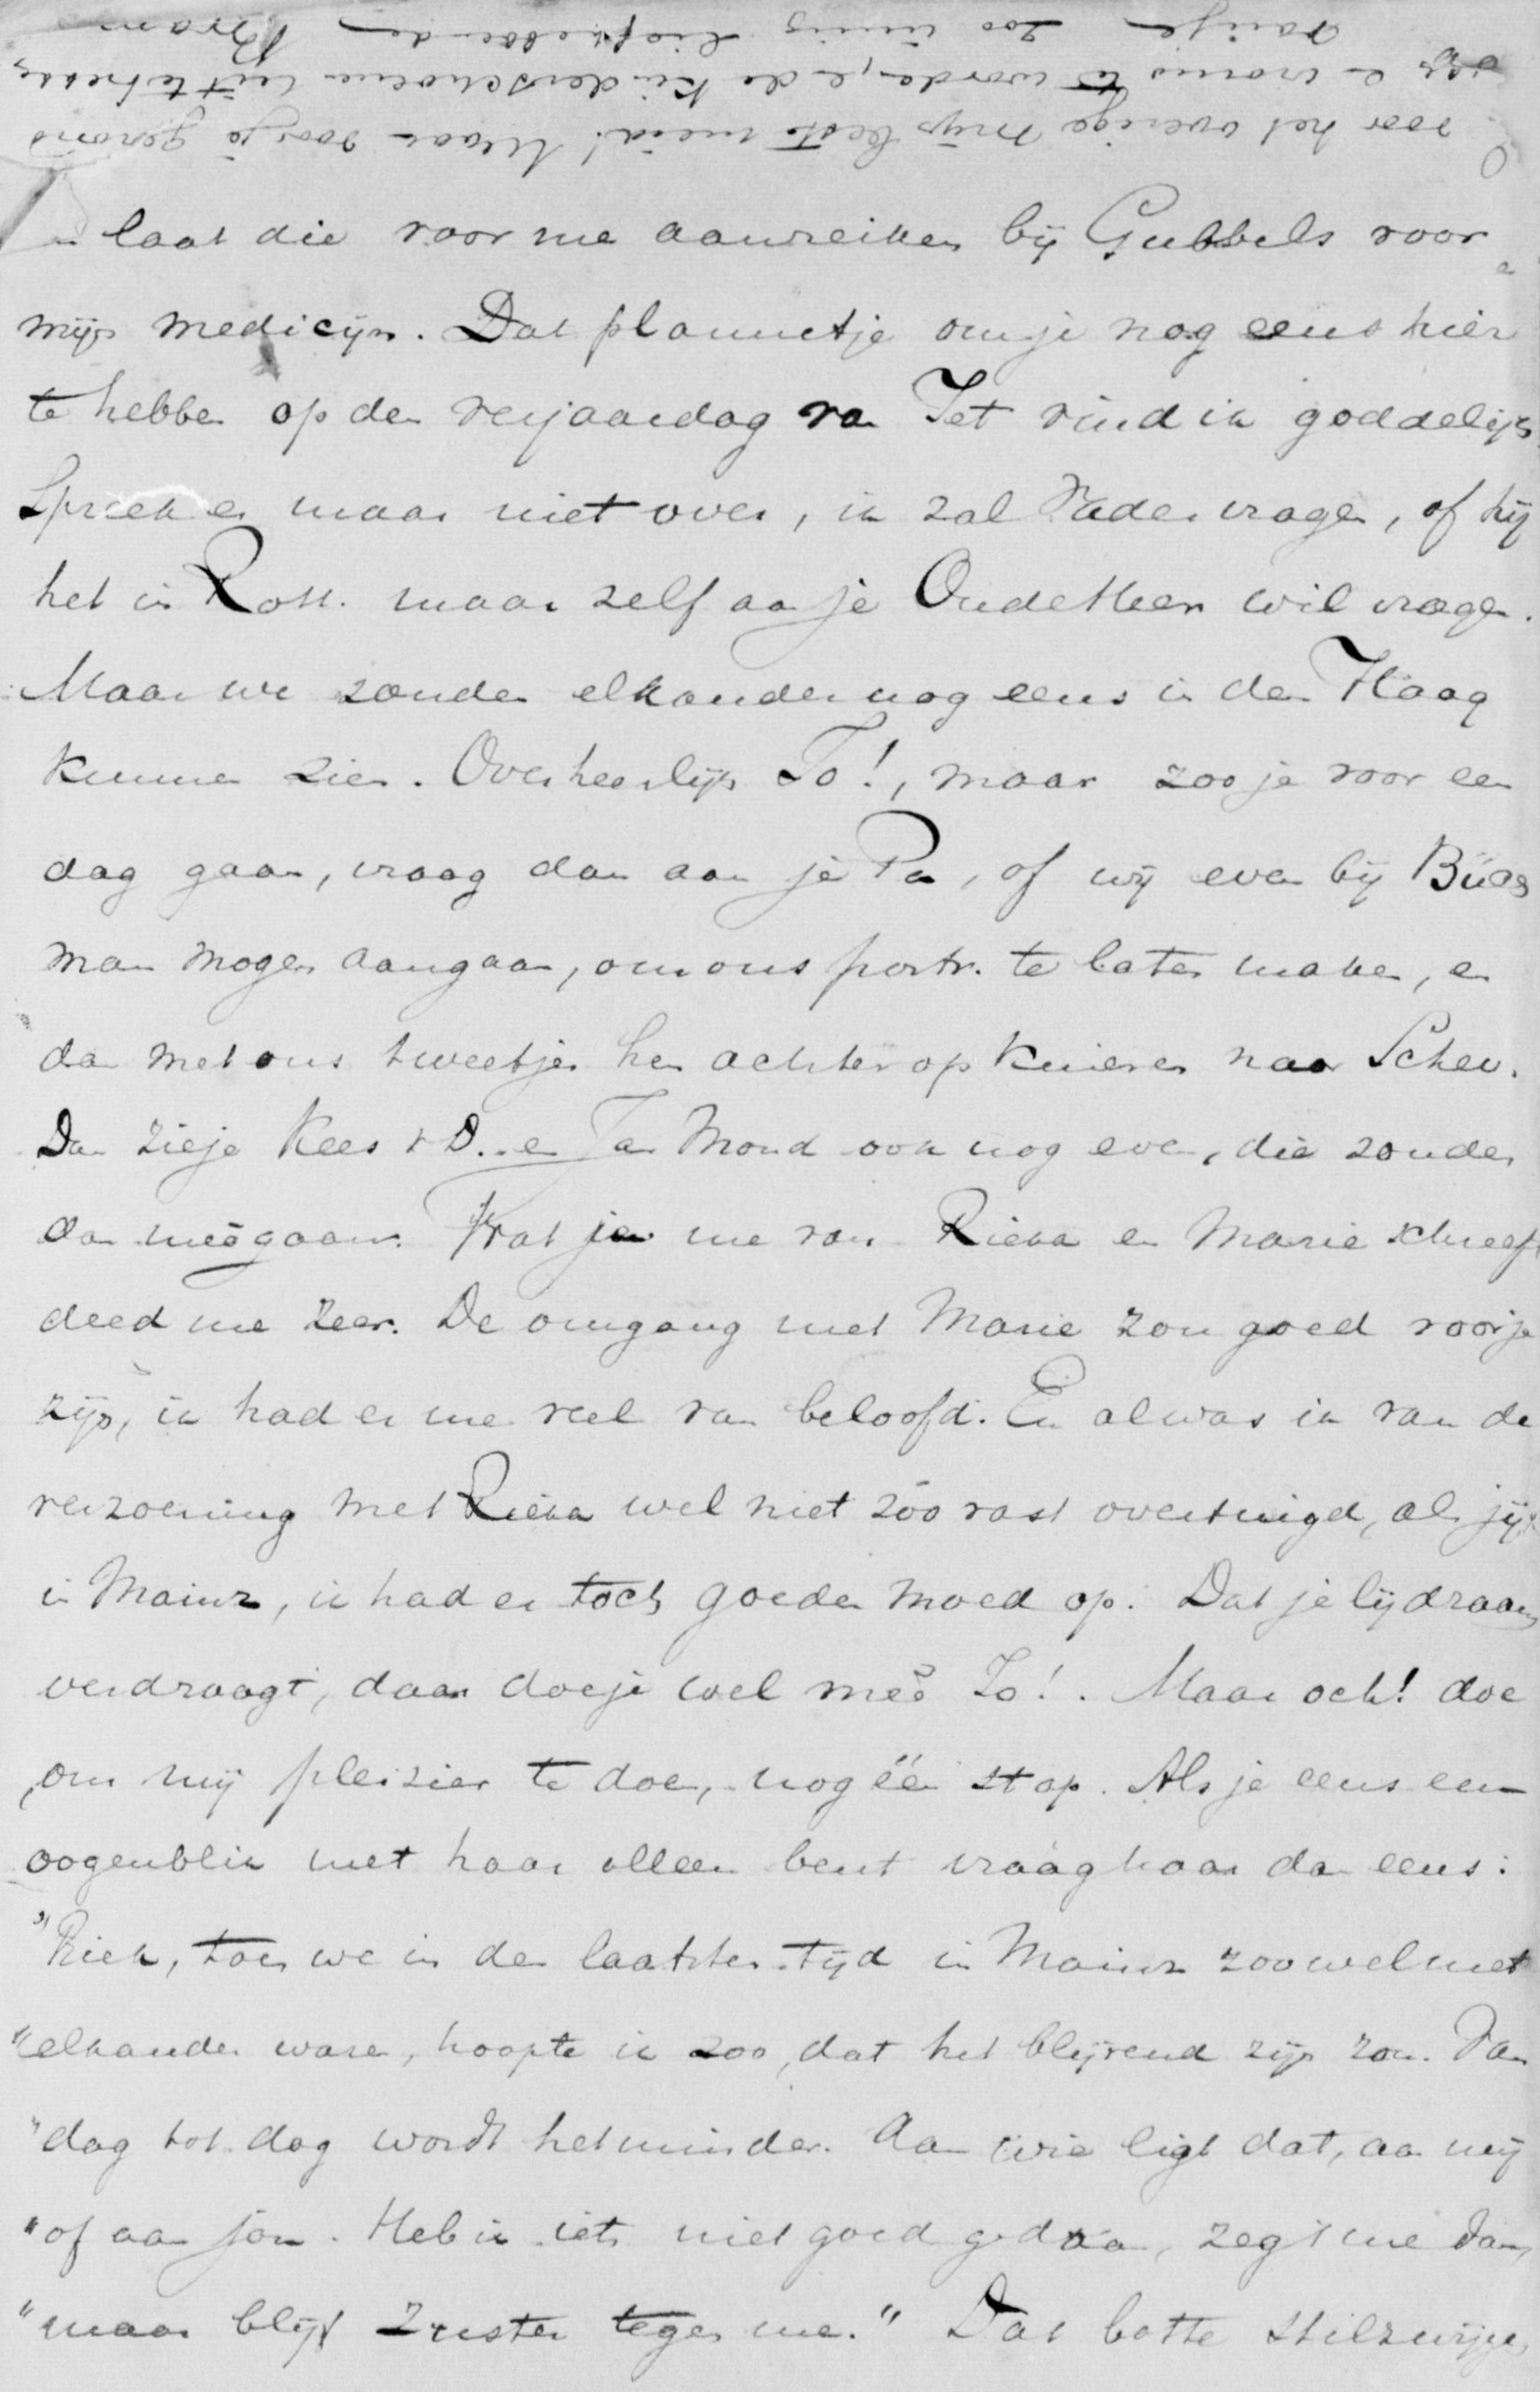 voor het overige mijn beste meid! Maar door je gezond
en vrouw te worden, de kinderschoenen uit te trekken
zoo innig liefhebbende Bram
en laat die voor me aanreiken bij Gubbels voor
mijn medicijn. Dat plannetje om je nog eens hier
te hebben op den verjaardag van Jet vind ik goddelijk
Spreek er maar niet over, ik zal Vader vragen, of hij
het in Rott. maar zelf aan je Oude Heer wil vragen.
Maar we zouden elkander nog eens in den Haag
kunnen zien. Overheerlijk To!, maar zoo je voor een
dag gaan, vraag dan aan je Pa, of wij even bij
man mogen aangaan, om ons portr. te laten maken, en
dan met ons tweetjes hen achterop kuieren naar Schev.
Dan zie je Kees v D. en Jan Mond ook nog even, die zouden
dan meêgaan. Wat je me van Rieka en Marie schreef
deed me zeer. De omgang met Marie zou goed voor je
zijn, ik had er me veel van beloofd. En al was ik van de
verzoening met Rieka wel niet zóó vast overtuigd, als jij
in Mainz, ik had er toch goeden moed op. Dat je lijdzaam
verdraagt, daar doe je wel meê To!. Maar och! doe
om mij pleizier te doen, nog één stap. Als je eens een
oogenblik met haar alleen bent vraag haar dan eens:
"Riek, toen we in den laatsten tijd in Mainz zoo wel met
"elkander waren, hoopte ik zoo, dat het blijvend zijn zou. Van
"dag tot dag wordt het minder. Aan wie ligt dat, aan mij
"of aan jou. Heb ik iets niet goed gedaan, zeg 't me dan,
"maar blijf zuster tegen me." Dat botte stilzwijgen